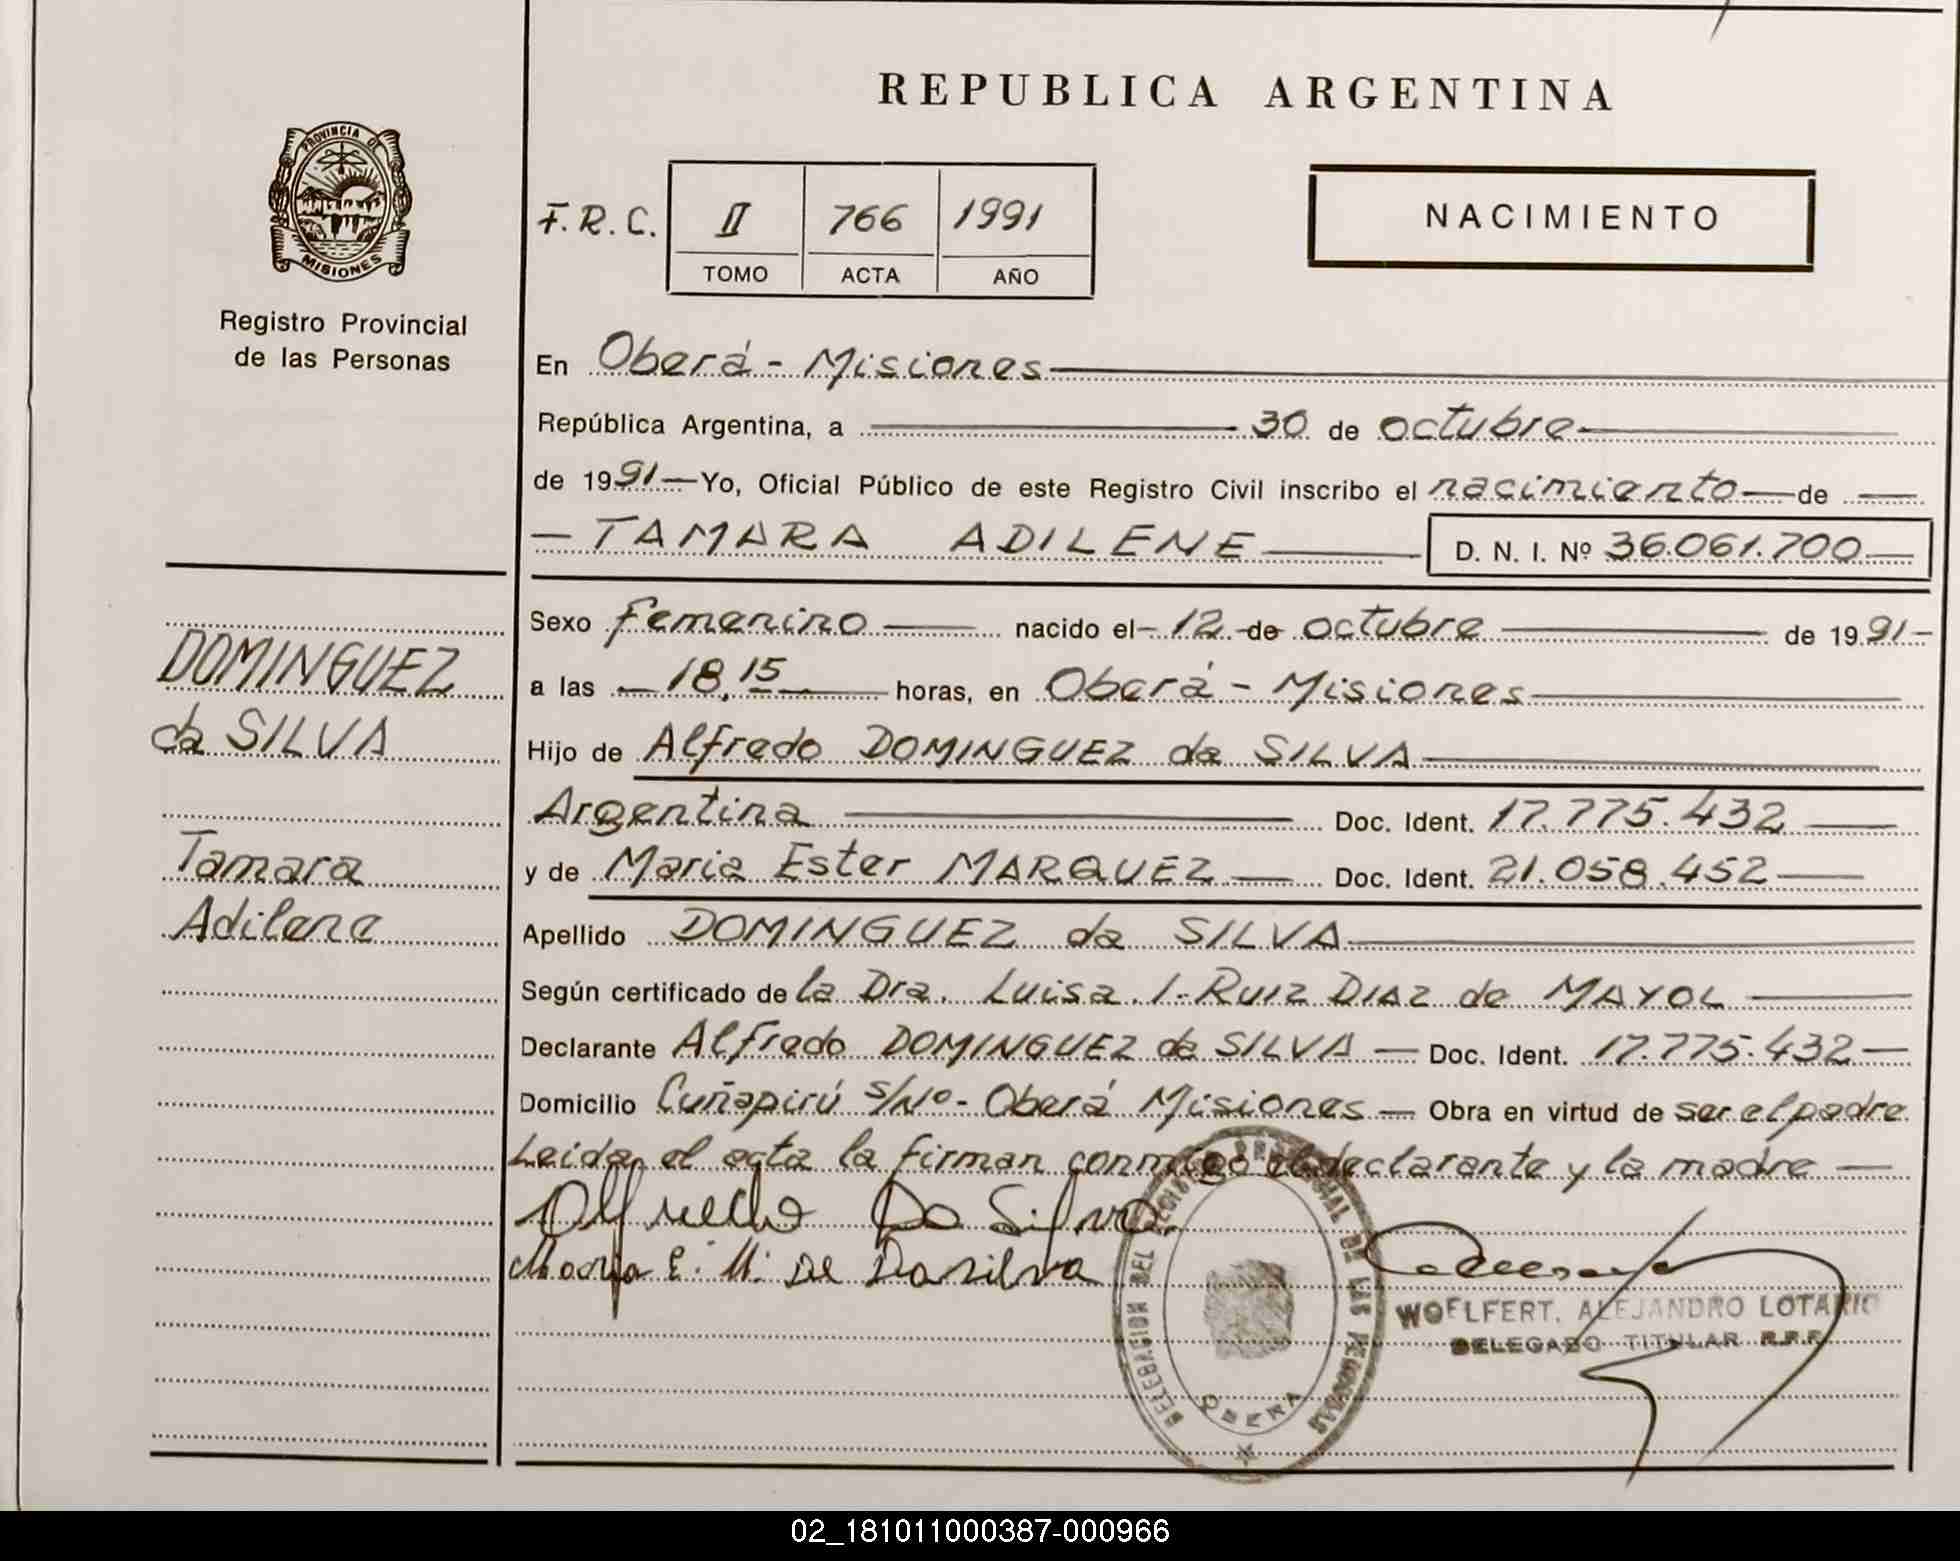 REPUBLICA ARGENTINA
PROVINCIA DE
MISIONES
Registro Provincial
de las Personas
F.R.C. II 766 1991
TOMO ACTA AÑO
NACIMIENTO
En Oberá - Misiones
República Argentina, a 30 de octubre
de 1991 Yo, Oficial Público de este Registro Civil inscribo el nacimiento de
TAMARA ADILENE D. N. I. Nº 36.061.700
DOMINGUEZ
da SILVA
Tamara
Adilene
Sexo femenino nacido el 12 de octubre de 1991
a las 18,15 horas, en Oberá - Misiones
Hijo de Alfredo DOMINGUEZ da SILVA
Argentina Doc. Ident. 17.775.432
y de Maria Ester MARQUEZ Doc. Ident. 21.058.452
Apellido DOMINGUEZ da SILVA
Según certificado de la Dra. Luisa I. RUIZ DIAZ de MAYOL
Declarante Alfredo DOMINGUEZ da SILVA Doc. Ident. 17.775.432
Domicilio Cuñapirú s/Nº - Oberá Misiones Obra en virtud de ser el padre
Leida el acta la firman conmigo el declarante y la madre
Alfredo Da Silva
Maria E. M. De Dasilva
DELEGACION DEL REGISTRO PROVINCIAL DE LAS PERSONAS
OBERA
WOELFERT, ALEJANDRO LOTARIO
DELEGADO TITULAR R.P.P.
02_181011000387-000966